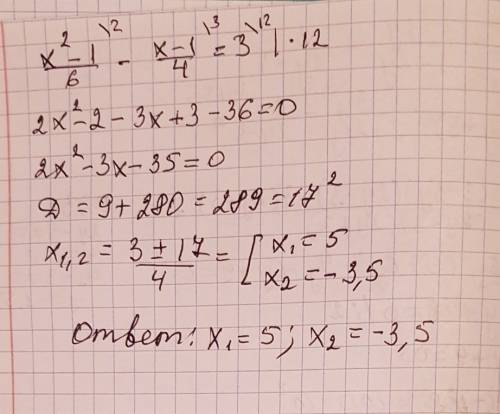 x² - 1 \2 / 6 - x - 1 \3 / 4 = 3 \12 | · 12
2x² - 2 - 3x + 3 - 36 = 0
2x² - 3x - 35 = 0
D = 9 + 280 = 289 = 17²
x₁,₂ = 3 ± 17 / 4 = [ x₁ = 5
x₂ = - 3,5
Ответ: x₁ = 5; x₂ = -3,5